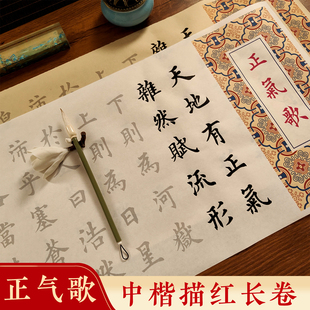 正氣歌
天地有正氣
雜然賦流形
下則為河嶽
上則為日
於曰浩
沛乎塞蒼
當
正气歌
中楷描红长卷